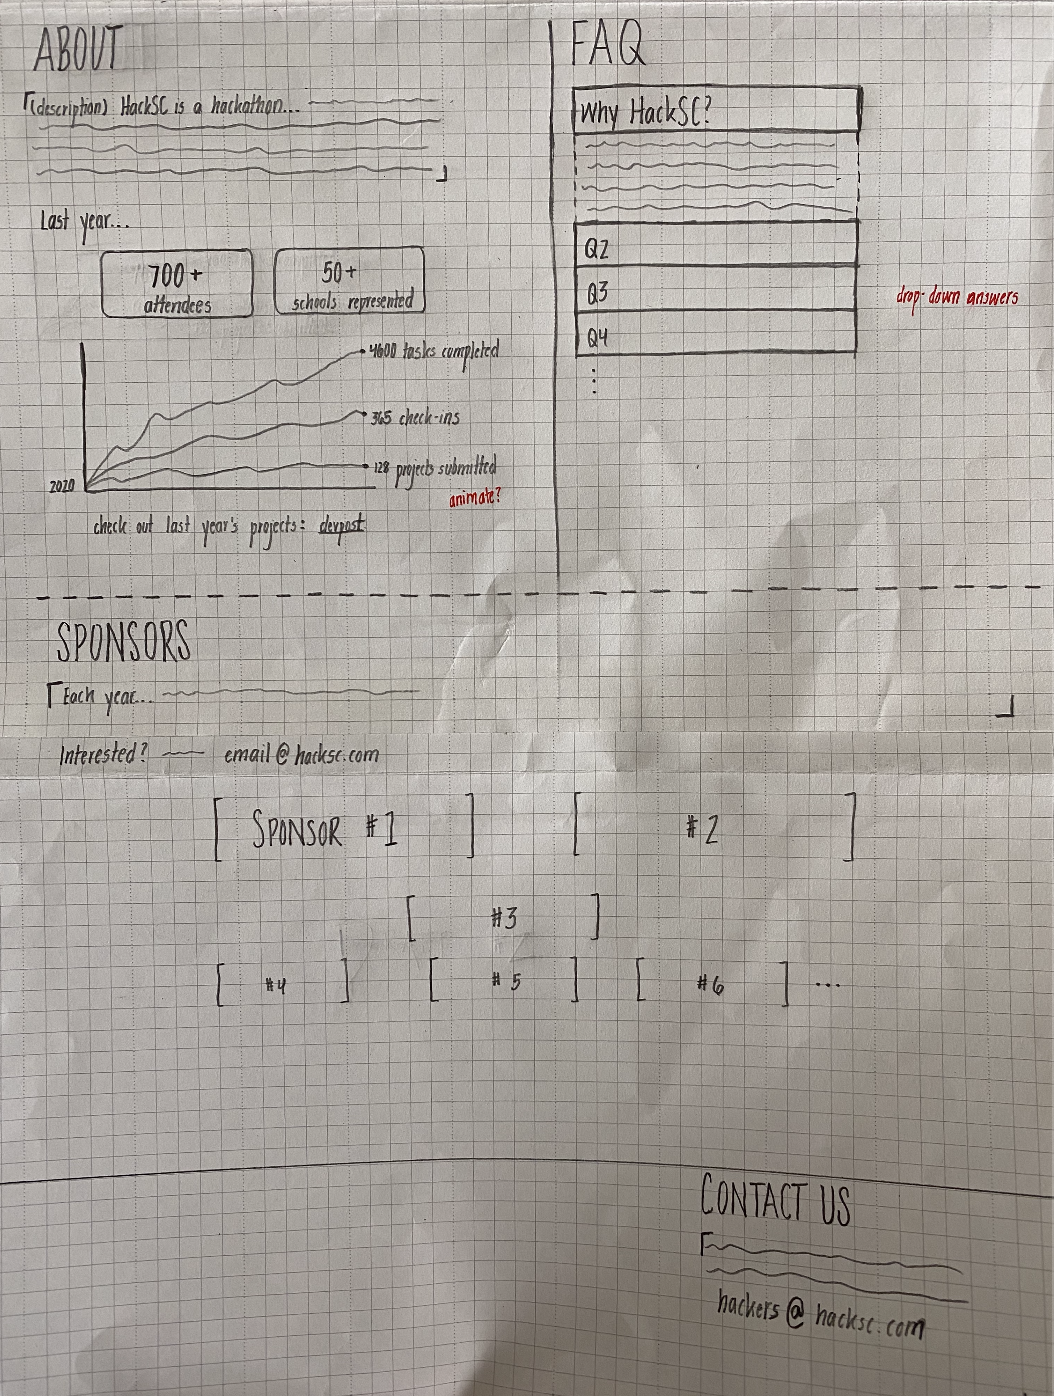 ABOUT
(description) HackSC is a hackathon...
Last year...
700+
attendees
50+
schools represented
4600 tasks completed
365 check-ins
128 projects submitted
2020
animate?
check out last year's projects: devpost
FAQ
Why HackSC?
Q2
Q3
Q4
drop-down answers
SPONSORS
Each year...
Interested? email@hacksc.com
[ SPONSOR #1 ] [ #2 ]
[ #3 ]
[ #4 ] [ #5 ] [ #6 ] ...
CONTACT US
hackers@hacksc.com